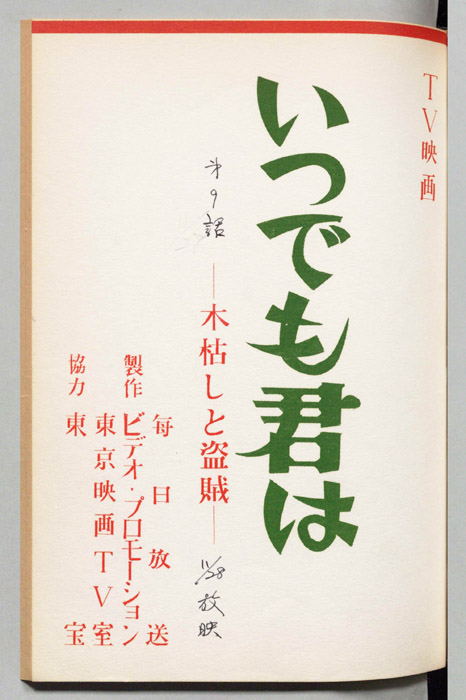 TV映画
いつでも君は
第9話
―木枯しと盗賊―
11/28放映
毎日放送
製作 ビデオ・プロモーション
東京映画TV室
協力 東宝